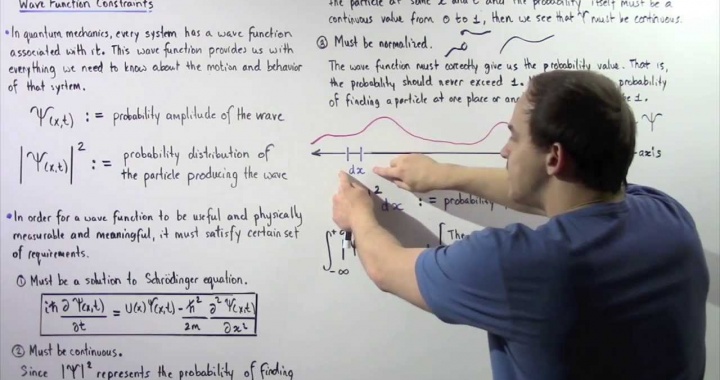 Wave Function Constraints
• In quantum mechanics, every system has a wave function
associated with it. This wave function provides us with
everything we need to know about the motion and behavior
of that system.
Ψ(x,t) := probability amplitude of the wave
|Ψ(x,t)|² := probability distribution of
the particle producing the wave
• In order for a wave function to be useful and physically
measurable and meaningful, it must satisfy certain set
of requirements.
① Must be a solution to Schrödinger equation.
iℏ ∂Ψ(x,t)/∂t = U(x)Ψ(x,t) - ℏ²/2m ∂²Ψ(x,t)/∂x²
② Must be continuous.
Since |Ψ|² represents the probability of finding
the particle at some x and t and the probability itself must be a
continuous value from 0 to 1, then we see that Ψ must be continuous.
③ Must be normalized.
The wave function must correctly give us the probability value. That is,
the probability should never exceed 1. probability
of finding a particle at one place or 1.
Ψ
-axis
dx
² dx := probability
∫ -∞ [The